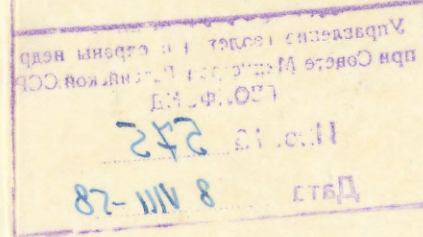 Управление геологии и охраны недр
при Совете Министров ССР
ГЕО.ФОНД
Инв. № 575
Дата 8 VIII-58